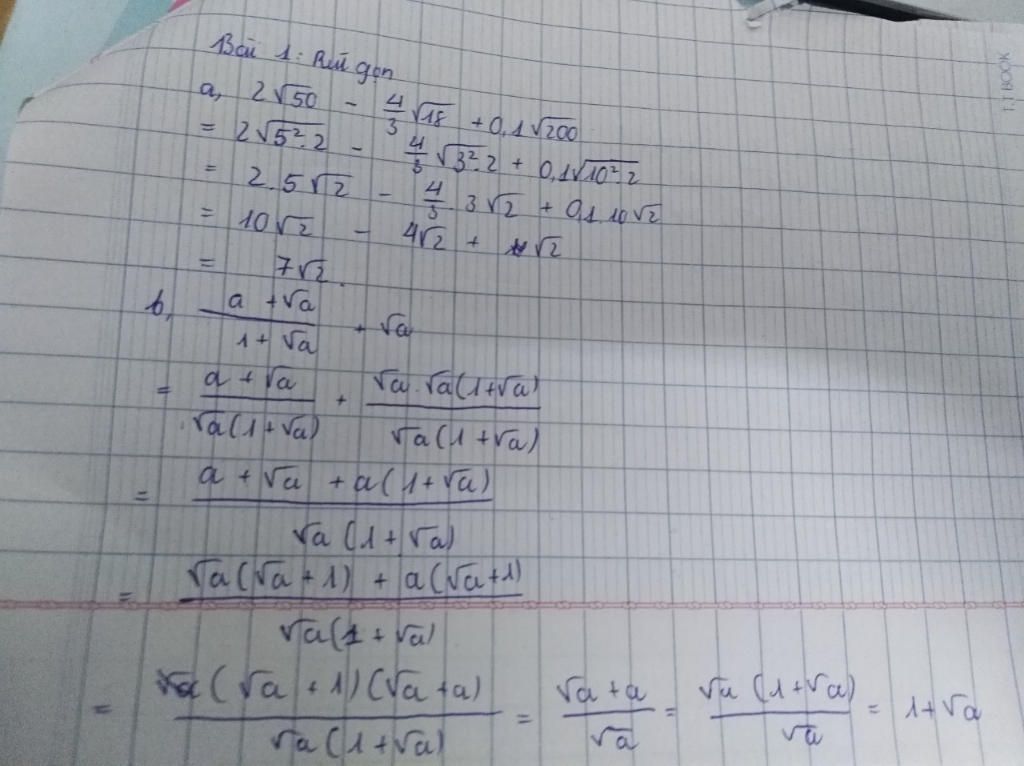 Bài 1: Rút gọn
a, 2√50 - 4/3 √18 + 0,1√200
= 2√5².2 - 4/3 √3².2 + 0,1√10².2
= 2.5√2 - 4/3 . 3√2 + 0,1.10√2
= 10√2 - 4√2 + √2
= 7√2.
b, (a + √a)/(1 + √a) + √a
= (a + √a)/(√a(1 + √a)) + (√a.√a(1+√a))/(√a(1 + √a))
= (a + √a + a(1+√a))/(√a(1 + √a))
= (√a(√a + 1) + a(√a+1))/(√a(1 + √a))
= ((√a + 1)(√a + a))/(√a(1 + √a)) = (√a + a)/√a = (√a(1+√a))/√a = 1+√a